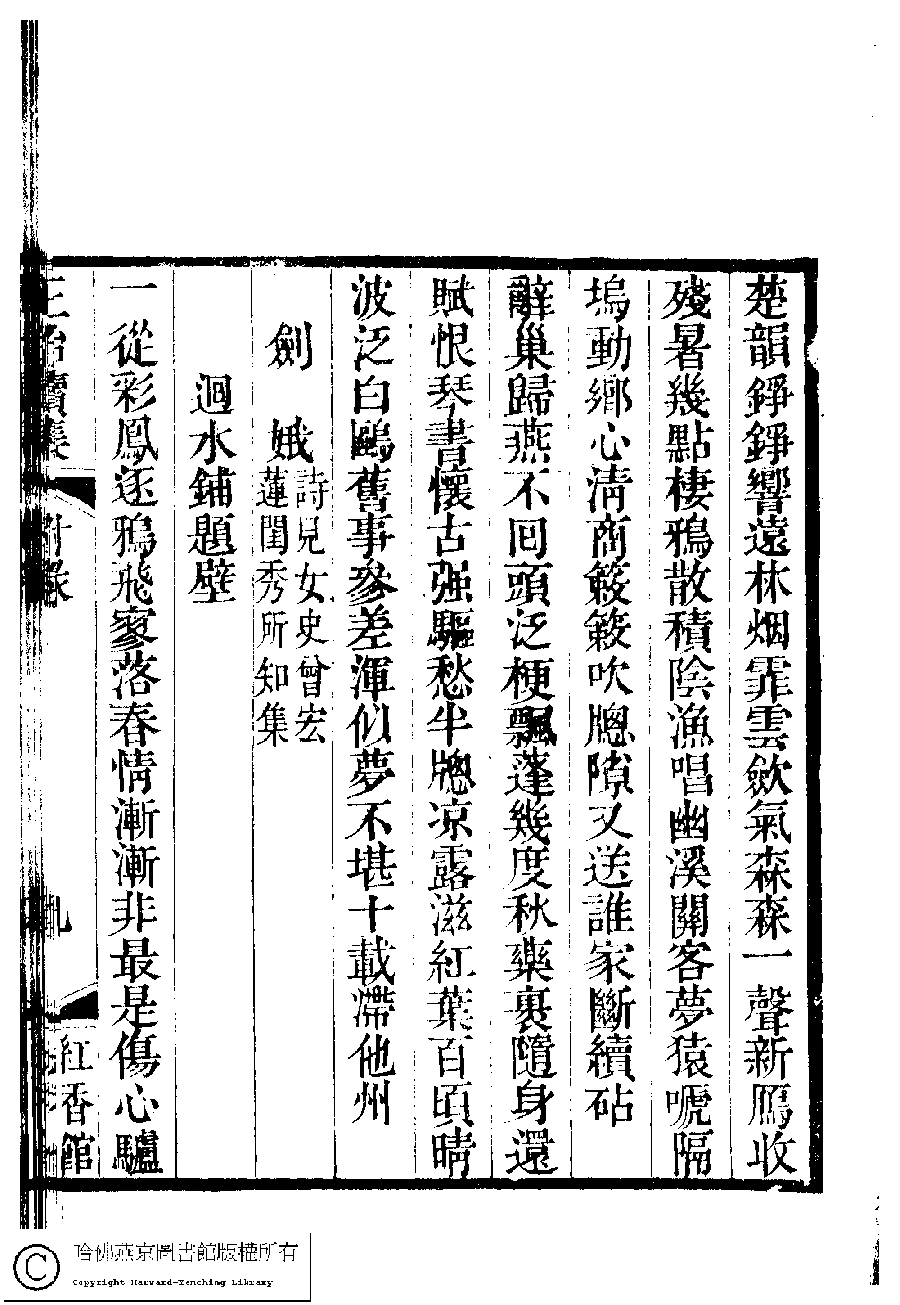 楚韻錚錚響遠林烟霏雲歛氣森森一聲新鴈收
殘暑幾點棲鴉散積陰漁唱幽溪關客夢猿嗁隔
塢動鄉心淸商簌簌吹牕隙又送誰家斷續砧
辭巢歸燕不回頭泛梗飄蓬幾度秋藥裹隨身還
賦恨琴書懷古强驅愁半牕凉露滋紅葉百頃晴
波泛白鷗舊事參差渾似夢不堪十載滯他州
劍娥
詩見女史曾宏
蓮閨秀所知集
迴水鋪題壁
一從彩鳳逐鴉飛寥落春情漸漸非最是傷心驢
附錄
九
紅香館
哈佛燕京圖書館版權所有
Copyright Harvard-Yenching Library